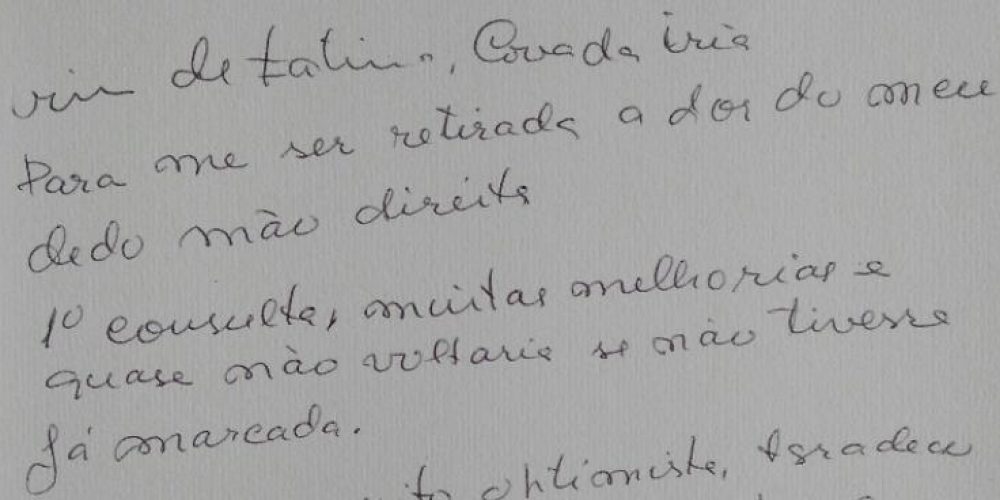 vim de Fatima, Cova da iria
Para me ser retirada a dor do meu
dedo mão direita
1º consulta, muitas melhorias e
quase não voltaria se não tivesse
já marcada.
optimista, Agradeço